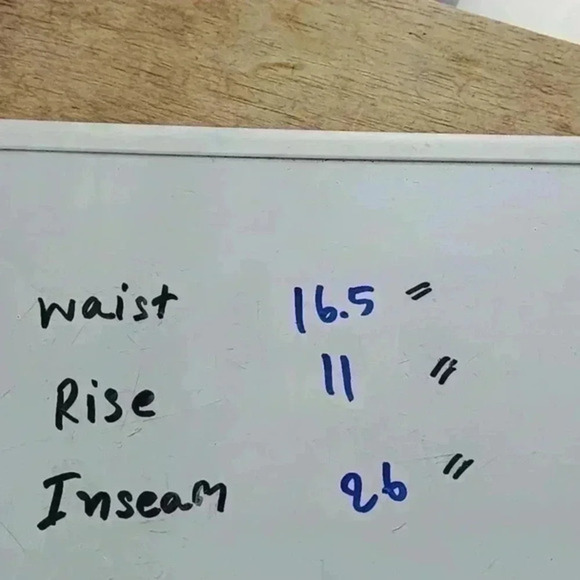 waist 16.5 "
Rise 11 "
Inseam 26 "